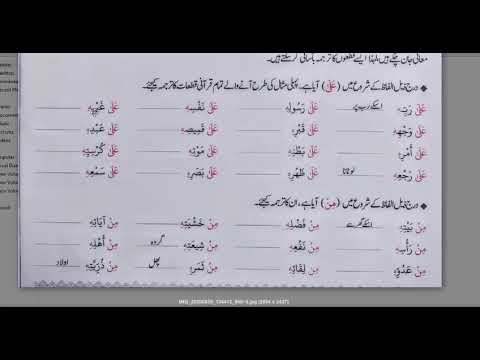 معانی جان چکے ہیں، لہٰذا ایسے قطعوں کا ترجمہ بآسانی کر سکتے ہیں۔
درج ذیل الفاظ کے شروع میں (عَلَىٰ) آیا ہے، پہلی مثال کی طرح آنے والے تمام قرآنی قطعات کا ترجمہ کیجئے۔
عَلَىٰ رَبِّهٖ اسکے رب پر عَلَىٰ رَسُوْلِهٖ عَلَىٰ نَفْسِهٖ عَلَىٰ غَيْبِهٖ
عَلَىٰ وَجْهِهٖ عَلَىٰ قَمِيْصِهٖ عَلَىٰ عَبْدِهٖ
عَلَىٰ اَمْرِهٖ عَلَىٰ بَطْنِهٖ عَلَىٰ مَوْتِهٖ عَلَىٰ كُرْسِيِّهٖ
عَلَىٰ رَجْعِهٖ لوٹانا عَلَىٰ ظَهْرِهٖ عَلَىٰ بَصَرِهٖ عَلَىٰ سَمْعِهٖ
درج ذیل الفاظ کے شروع میں (مِنْ) آیا ہے، ان کا ترجمہ کیجئے۔
مِنْ بَيْتِهٖ اسکے گھر سے مِنْ فَضْلِهٖ مِنْ خَشْيَتِهٖ مِنْ آيَاتِهٖ
مِنْ رَأْسِهٖ مِنْ نَفْعِهٖ مِنْ شِيْعَتِهٖ گروہ مِنْ اَهْلِهٖ
مِنْ عَدُوِّهٖ مِنْ لِقَائِهٖ مِنْ ثَمَرِهٖ پھل مِنْ ذُرِّيَّتِهٖ اولاد